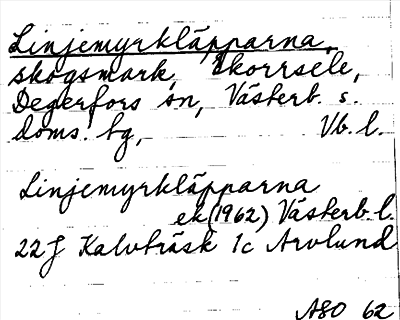 Linjemyrkläpparna,
skogsmark, Ekorrsele,
Degerfors sn, Västerb. s.
doms. bg, Vb. l.
Linjemyrkläpparna
ek (1962) Västerb. l.
22 J Kalvträsk 1c Arvlund
ASO 62